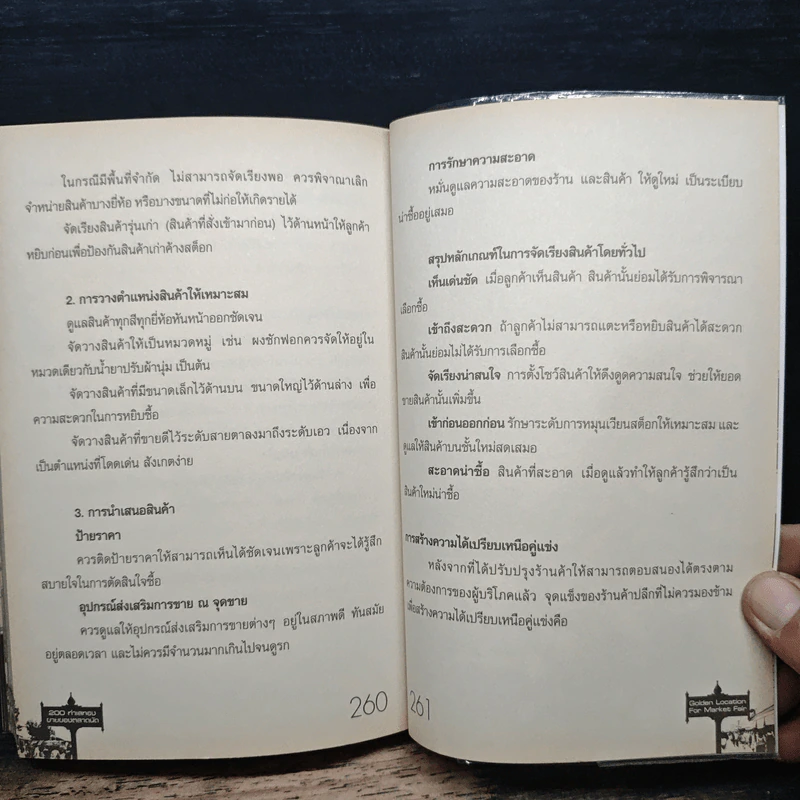 ในกรณีมีพื้นที่จำกัด ไม่สามารถจัดเรียงพอ ควรพิจารณาเลิก
จำหน่ายสินค้าบางยี่ห้อ หรือบางขนาดที่ไม่ก่อให้เกิดรายได้
จัดเรียงสินค้ารุ่นเก่า (สินค้าที่สั่งเข้ามาก่อน) ไว้ด้านหน้าให้ลูกค้า
หยิบก่อนเพื่อป้องกันสินค้าเก่าค้างสต็อก
2. การวางตำแหน่งสินค้าให้เหมาะสม
ดูแลสินค้าทุกสีทุกยี่ห้อหันหน้าออกชัดเจน
จัดวางสินค้าให้เป็นหมวดหมู่ เช่น ผงซักฟอกควรจัดให้อยู่ใน
หมวดเดียวกับน้ำยาปรับผ้านุ่ม เป็นต้น
จัดวางสินค้าที่มีขนาดเล็กไว้ด้านบน ขนาดใหญ่ไว้ด้านล่าง เพื่อ
ความสะดวกในการหยิบซื้อ
จัดวางสินค้าที่ขายดีไว้ระดับสายตาลงมาถึงระดับเอว เนื่องจาก
เป็นตำแหน่งที่โดดเด่น สังเกตง่าย
3. การนำเสนอสินค้า
ป้ายราคา
ควรติดป้ายราคาให้สามารถเห็นได้ชัดเจนเพราะลูกค้าจะได้รู้สึก
สบายใจในการตัดสินใจซื้อ
อุปกรณ์ส่งเสริมการขาย ณ จุดขาย
ควรดูแลให้อุปกรณ์ส่งเสริมการขายต่างๆ อยู่ในสภาพดี ทันสมัย
อยู่ตลอดเวลา และไม่ควรมีจำนวนมากเกินไปจนดูรก
200 ทำเลทอง
ขายของตลาดนัด
260
การรักษาความสะอาด
หมั่นดูแลความสะอาดของร้าน และสินค้า ให้ดูใหม่ เป็นระเบียบ
น่าซื้ออยู่เสมอ
สรุปหลักเกณฑ์ในการจัดเรียงสินค้าโดยทั่วไป
เห็นเด่นชัด เมื่อลูกค้าเห็นสินค้า สินค้านั้นย่อมได้รับการพิจารณา
เลือกซื้อ
เข้าถึงสะดวก ถ้าลูกค้าไม่สามารถแตะหรือหยิบสินค้าได้สะดวก
สินค้านั้นย่อมไม่ได้รับการเลือกซื้อ
จัดเรียงน่าสนใจ การตั้งโชว์สินค้าให้ดึงดูดความสนใจ ช่วยให้ยอด
ขายสินค้านั้นเพิ่มขึ้น
เข้าก่อนออกก่อน รักษาระดับการหมุนเวียนสต็อกให้เหมาะสม และ
ดูแลให้สินค้าบนชั้นใหม่สดเสมอ
สะอาดน่าซื้อ สินค้าที่สะอาด เมื่อดูแล้วทำให้ลูกค้ารู้สึกว่าเป็น
สินค้าใหม่น่าซื้อ
การสร้างความได้เปรียบเหนือคู่แข่ง
หลังจากที่ได้ปรับปรุงร้านค้าให้สามารถตอบสนองได้ตรงตาม
ความต้องการของผู้บริโภคแล้ว จุดแข็งของร้านค้าปลีกที่ไม่ควรมองข้าม
เพื่อสร้างความได้เปรียบเหนือคู่แข่งคือ
261
Golden Location
For Market Fair